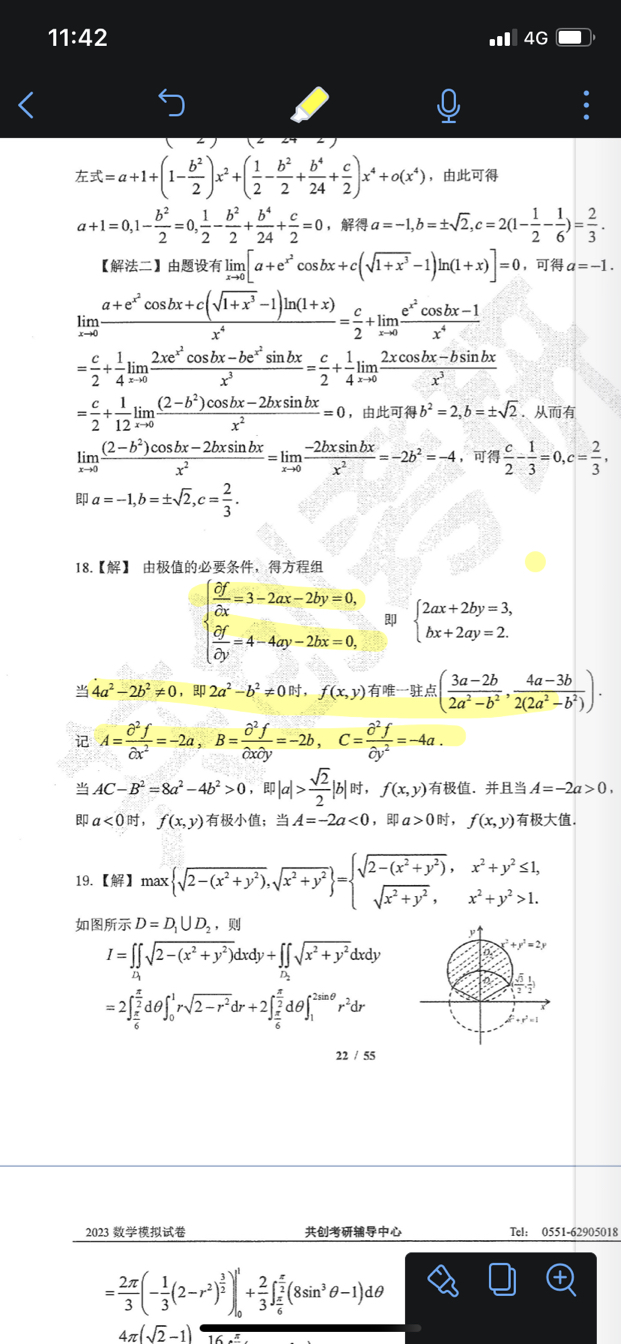 11:42
4G
左式=a+1+(1-b²/2)x²+(1/2-b²/2+b⁴/24+c/2)x⁴+o(x⁴)，由此可得
a+1=0,1-b²/2=0,1/2-b²/2+b⁴/24+c/2=0，解得a=-1,b=±√2,c=2(1-1/2-1/6)=2/3.
【解法二】由题设有lim x→0[a+e^{x²}cosbx+c(√(1+x³)-1)ln(1+x)]=0，可得a=-1.
lim x→0 (a+e^{x²}cosbx+c(√(1+x³)-1)ln(1+x))/x⁴=c/2+lim x→0 (e^{x²}cosbx-1)/x⁴
=c/2+1/4 lim x→0 (2xe^{x²}cosbx-be^{x²}sinbx)/x³=c/2+1/4 lim x→0 (2xcosbx-bsinbx)/x³
=c/2+1/12 lim x→0 ((2-b²)cosbx-2bxsinbx)/x²=0，由此可得b²=2,b=±√2．从而有
lim x→0 ((2-b²)cosbx-2bxsinbx)/x²=lim x→0 (-2bxsinbx)/x²=-2b²=-4，可得c/2-1/3=0,c=2/3，
即a=-1,b=±√2,c=2/3.
18.【解】 由极值的必要条件，得方程组
{∂f/∂x=3-2ax-2by=0, ∂f/∂y=4-4ay-2bx=0, 即 {2ax+2by=3, bx+2ay=2.
当4a²-2b²≠0，即2a²-b²≠0时，f(x,y)有唯一驻点((3a-2b)/(2a²-b²),(4a-3b)/(2(2a²-b²))).
记 A=∂²f/∂x²=-2a, B=∂²f/∂x∂y=-2b, C=∂²f/∂y²=-4a.
当AC-B²=8a²-4b²>0，即|a|>√2/2|b|时，f(x,y)有极值．并且当A=-2a>0，
即a<0时，f(x,y)有极小值；当A=-2a<0，即a>0时，f(x,y)有极大值．
19.【解】max{√(2-(x²+y²)),√(x²+y²)}={√(2-(x²+y²)), x²+y²≤1, √(x²+y²), x²+y²>1.
如图所示D=D₁∪D₂，则
I=∬_{D₁}√(2-(x²+y²))dxdy+∬_{D₂}√(x²+y²)dxdy
=2∫_{π/6}^{π/2}dθ∫_0^1 r√(2-r²)dr+2∫_{π/6}^{π/2}dθ∫_1^{2sinθ}r²dr
y
x²+y²=2y
(√3/2,1/2)
x
x²+y²=1
22 / 55
2023 数学模拟试卷 共创考研辅导中心 Tel: 0551-62905018
=2π/3(-1/3(2-r²)^{3/2})|_0^1+2/3∫_{π/6}^{π/2}(8sin³θ-1)dθ